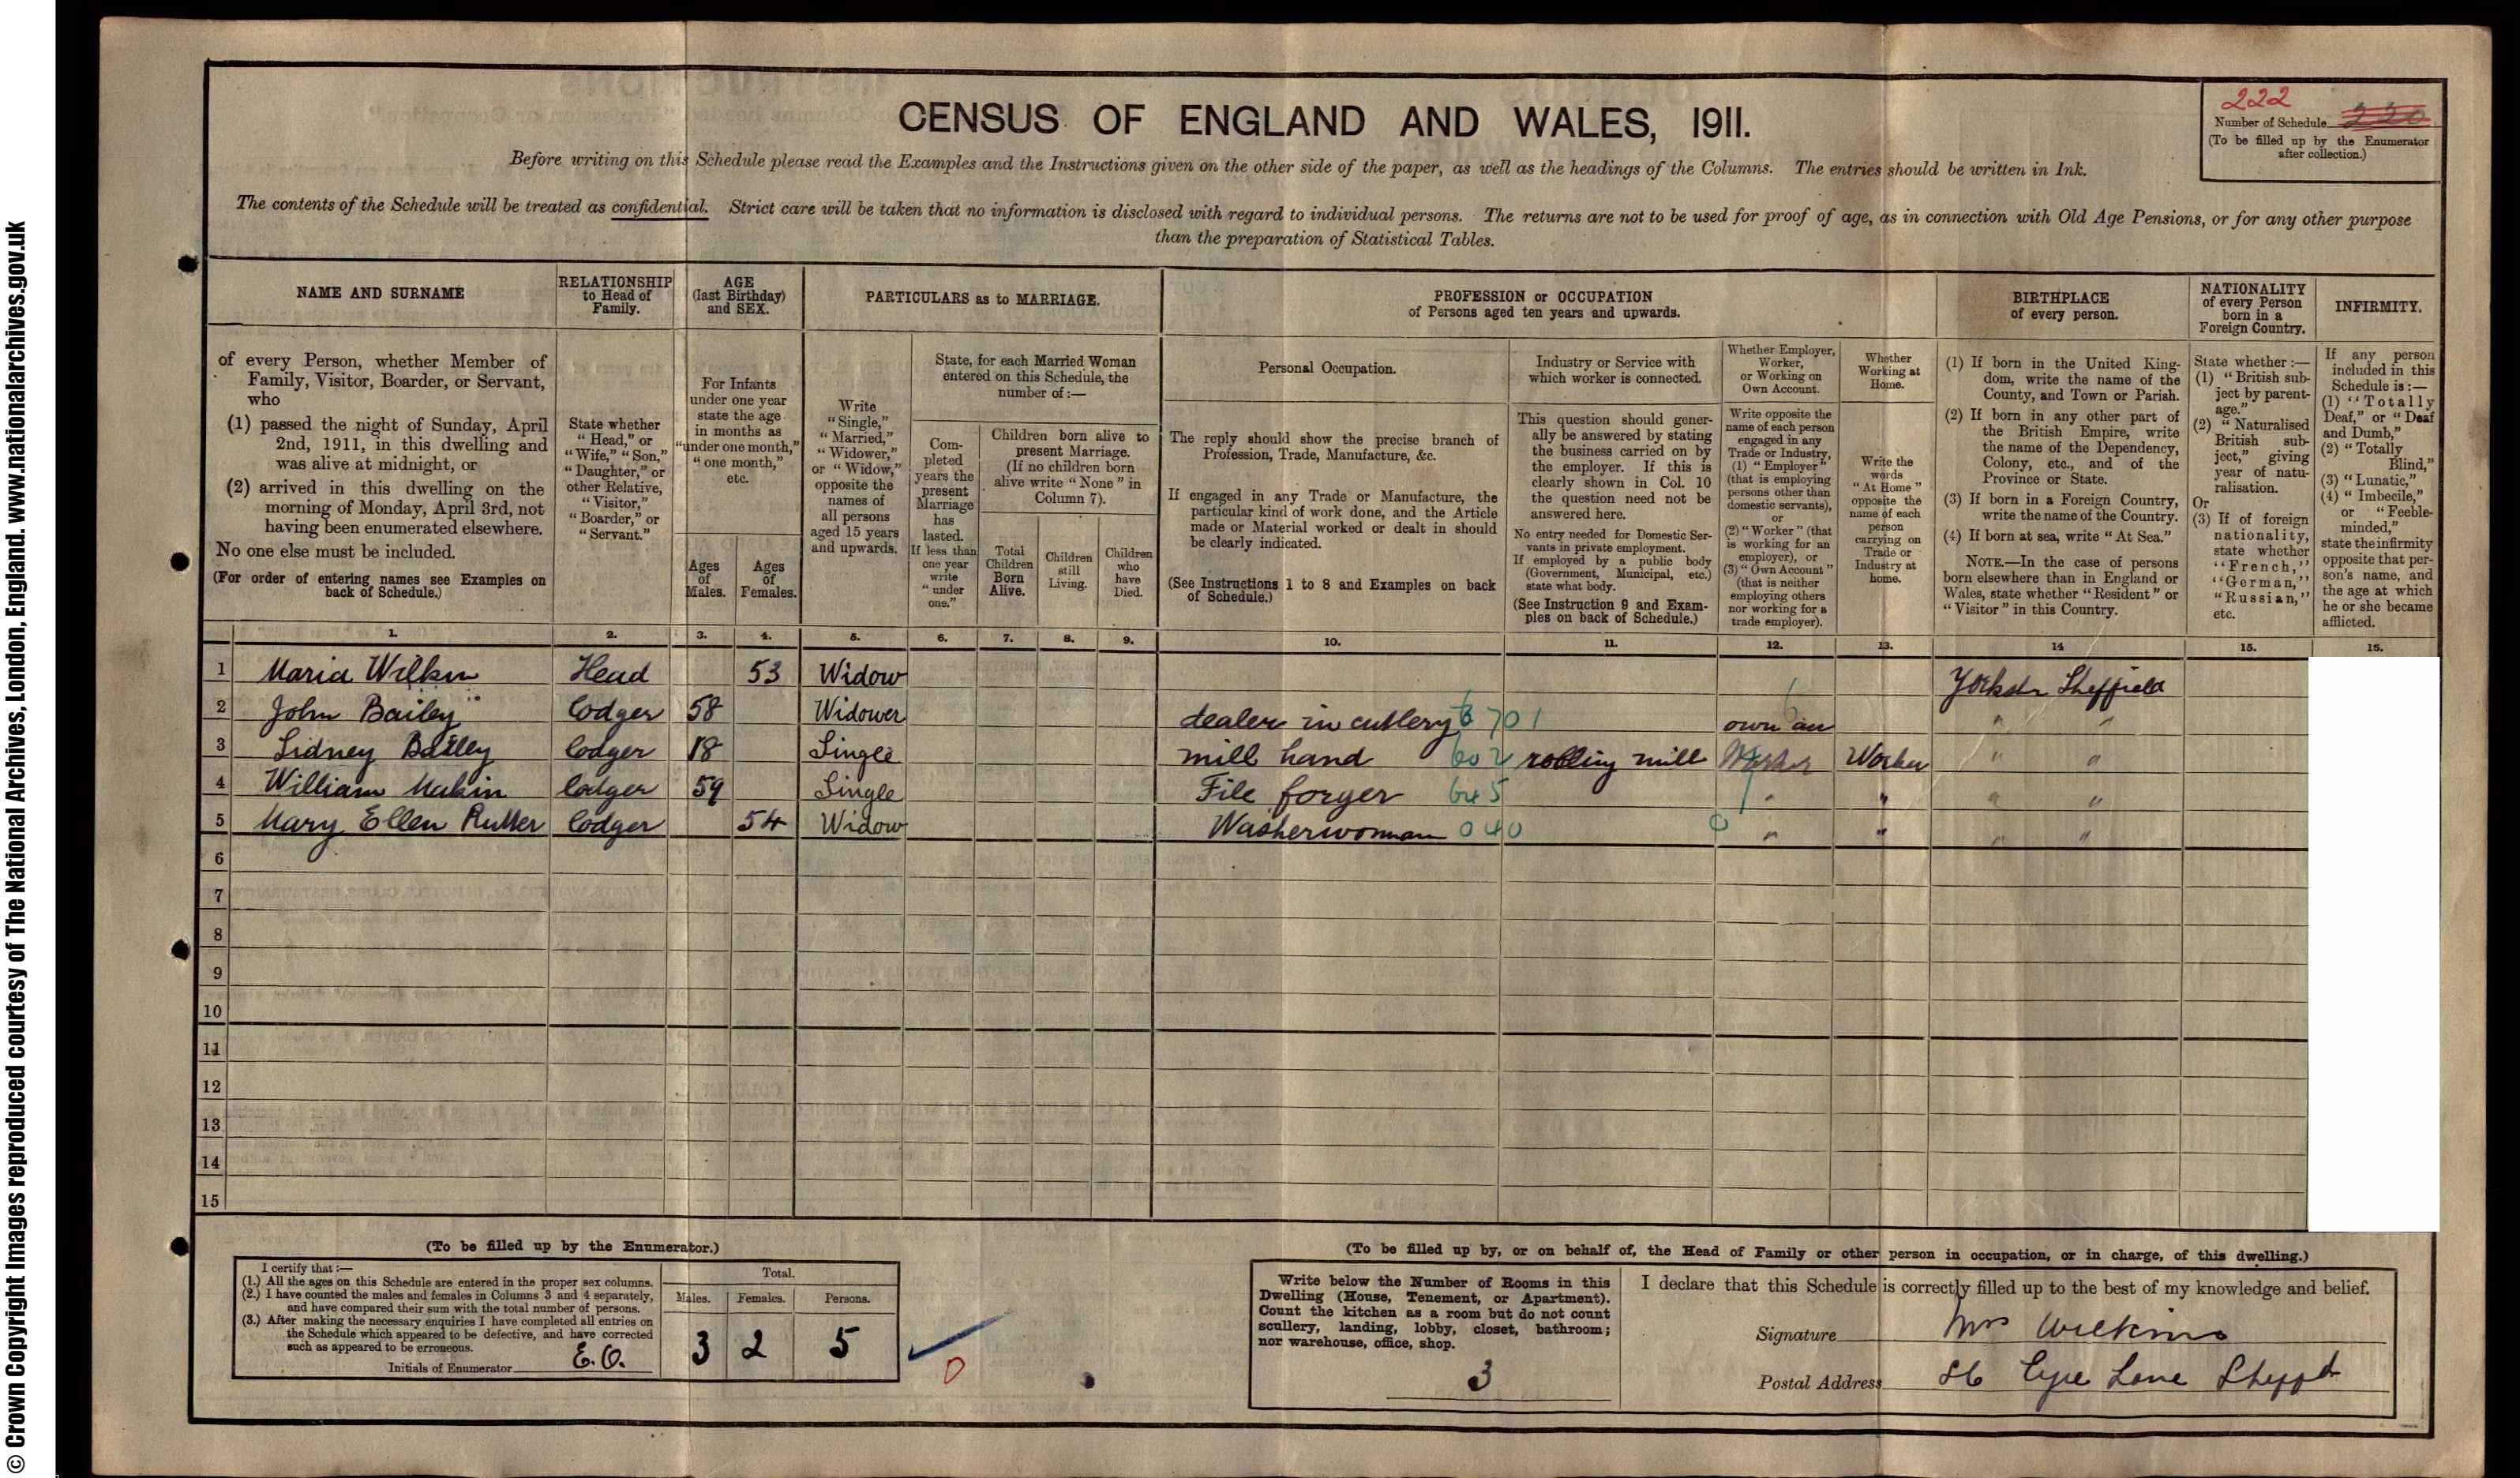 © Crown Copyright Images reproduced courtesy of The National Archives, London, England. www.nationalarchives.gov.uk
CENSUS OF ENGLAND AND WALES, 1911.
222
Number of Schedule 220
(To be filled up by the Enumerator
after collection.)
Before writing on this Schedule please read the Examples and the Instructions given on the other side of the paper, as well as the headings of the Columns. The entries should be written in Ink.
The contents of the Schedule will be treated as confidential. Strict care will be taken that no information is disclosed with regard to individual persons. The returns are not to be used for proof of age, as in connection with Old Age Pensions, or for any other purpose
than the preparation of Statistical Tables.
NAME AND SURNAME
of every Person, whether Member of
Family, Visitor, Boarder, or Servant,
who
(1) passed the night of Sunday, April
2nd, 1911, in this dwelling and
was alive at midnight, or
(2) arrived in this dwelling on the
morning of Monday, April 3rd, not
having been enumerated elsewhere.
No one else must be included.
(For order of entering names see Examples on
back of Schedule.)
RELATIONSHIP
to Head of
Family.
State whether
"Head," or
"Wife," "Son,"
"Daughter," or
other Relative,
"Visitor,"
"Boarder," or
"Servant."
AGE
(last Birthday)
and SEX.
For Infants
under one year
state the age
in months as
"under one month,"
"one month,"
etc.
Ages
of
Males.
Ages
of
Females.
PARTICULARS as to MARRIAGE.
Write
"Single,"
"Married,"
"Widower,"
or "Widow,"
opposite the
names of
all persons
aged 15 years
and upwards.
State, for each Married Woman
entered on this Schedule, the
number of:—
Com-
pleted
years the
present
Marriage
has
lasted.
If less than
one year
write
"under
one."
Children born alive to
present Marriage.
(If no children born
alive write "None" in
Column 7).
Total
Children
Born
Alive.
Children
still
Living.
Children
who
have
Died.
PROFESSION or OCCUPATION
of Persons aged ten years and upwards.
Personal Occupation.
The reply should show the precise branch of
Profession, Trade, Manufacture, &c.
If engaged in any Trade or Manufacture, the
particular kind of work done, and the Article
made or Material worked or dealt in should
be clearly indicated.
(See Instructions 1 to 8 and Examples on back
of Schedule.)
Industry or Service with
which worker is connected.
This question should gener-
ally be answered by stating
the business carried on by
the employer. If this is
clearly shown in Col. 10
the question need not be
answered here.
No entry needed for Domestic Ser-
vants in private employment.
If employed by a public body
(Government, Municipal, etc.)
state what body.
(See Instruction 9 and Exam-
ples on back of Schedule.)
Whether Employer,
Worker,
or Working on
Own Account.
Write opposite the
name of each person
engaged in any
Trade or Industry,
(1) "Employer"
(that is employing
persons other than
domestic servants),
or
(2) "Worker" (that
is working for an
employer), or
(3) "Own Account"
(that is neither
employing others
nor working for a
trade employer).
Whether
Working at
Home.
Write the
words
"At Home"
opposite the
name of each
person
carrying on
Trade or
Industry at
home.
BIRTHPLACE
of every person.
(1) If born in the United King-
dom, write the name of the
County, and Town or Parish.
(2) If born in any other part of
the British Empire, write
the name of the Dependency,
Colony, etc., and of the
Province or State.
(3) If born in a Foreign Country,
write the name of the Country.
(4) If born at sea, write "At Sea."
NOTE.—In the case of persons
born elsewhere than in England or
Wales, state whether "Resident" or
"Visitor" in this Country.
NATIONALITY
of every Person
born in a
Foreign Country.
State whether:—
(1) "British sub-
ject by parent-
age."
(2) "Naturalised
British sub-
ject," giving
year of natu-
ralisation.
Or
(3) If of foreign
nationality,
state whether
"French,"
"German,"
"Russian,"
etc.
INFIRMITY.
If any person
included in this
Schedule is:—
(1) "Totally
Deaf," or "Deaf
and Dumb,"
(2) "Totally
Blind,"
(3) "Lunatic,"
(4) "Imbecile,"
or "Feeble-
minded,"
state the infirmity
opposite that per-
son's name, and
the age at which
he or she became
afflicted.
1. 2. 3. 4. 5. 6. 7. 8. 9. 10. 11. 12. 13. 14 15. 16.
1 Maria Wilkin Head 53 Widow Sheffield
2 John Bailey lodger 58 Widower dealer in cutlery 6 701 own " "
3 Sidney Bailey lodger 18 Single mill hand 602 rolling mill Worker Worker " "
4 William Makin lodger 59 Single File forger 645 " " " "
5 Mary Ellen Rutter lodger 54 Widow Washerwoman 040 0 " " " "
6
7
8
9
10
11
12
13
14
15
(To be filled up by the Enumerator.)
I certify that:—
(1.) All the ages on this Schedule are entered in the proper sex columns.
(2.) I have counted the males and females in Columns 3 and 4 separately,
and have compared their sum with the total number of persons.
(3.) After making the necessary enquiries I have completed all entries on
the Schedule which appeared to be defective, and have corrected
such as appeared to be erroneous.
Initials of Enumerator E. O.
Total.
Males. Females. Persons.
3 2 5
0
(To be filled up by, or on behalf of, the Head of Family or other person in occupation, or in charge, of this dwelling.)
Write below the Number of Rooms in this
Dwelling (House, Tenement, or Apartment).
Count the kitchen as a room but do not count
scullery, landing, lobby, closet, bathroom;
nor warehouse, office, shop.
3
I declare that this Schedule is correctly filled up to the best of my knowledge and belief.
Signature Mrs Wilkins
Postal Address 86 Eyre Lane